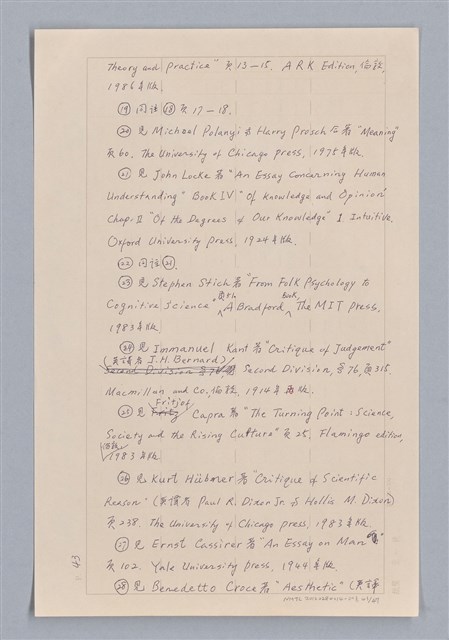 Theory and Practice" 頁13—15. ARK Edition, 倫敦,
1986年版.
⑲ 同註⑱頁17—18.
⑳ 見 Michael Polanyi 及 Harry Prosch 合著 "Meaning"
頁60. The University of Chicago press. 1975年版.
㉑ 見 John Locke 著 "An Essay Concerning Human
Understanding" Book IV "Of Knowledge and Opinion"
Chap. II "Of the Degrees of Our Knowledge" 1. Intuitive.
Oxford University Press, 1924年版.
㉒ 同註㉑.
㉓ 見 Stephen Stich 著 "From Folk Psychology to
Cognitive Science" A Bradford Book, The MIT press.
1983年版.
㉔ 見 Immanuel Kant 著 "Critique of Judgement"
(英譯者 J.H. Bernard)
Second Division, 76, 頁315.
Macmillan and Co. 倫敦, 1914年版.
㉕ 見 Fritjof Capra 著 "The Turning Point: Science,
Society and the Rising Culture" 頁25. Flamingo edition,
倫敦 1983年版.
㉖ 見 Kurt Hübner 著 "Critique of Scientific
Reason" (英譯者 Paul R. Dixon Jr. & Hollis M. Dixon)
頁238. The University of Chicago press. 1983年版.
㉗ 見 Ernst Cassirer 著 "An Essay on Man"
頁102. Yale University press. 1944年版.
㉘ 見 Benedetto Croce 著 "Aesthetic" (英譯
43